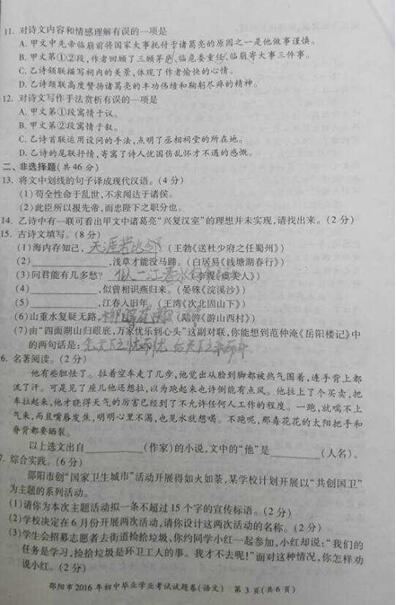 11. 对诗文内容和情感理解有误的一项是
A. 甲文中先帝临崩前将国家大事托付于诸葛亮的原因之一是他做事谨慎。
B. 甲文第①②段,作者回顾了三顾茅庐、临危受重任、临崩寄大事三件事。
C. 乙诗颔联描写祠内的美景,体现了作者愉快的心情。
D. 乙诗颈联高度赞扬诸葛亮的丰功伟绩和鞠躬尽瘁的精神。
12. 对诗文写作手法赏析有误的一项是
A. 甲文第①段寓情于议。
B. 甲文第②段寓情于叙。
C. 乙诗首联运用设问的手法,点明了丞相祠堂的所在地。
D. 乙诗的尾联抒情,寄寓了诗人忧国伤乱怀才不遇的感慨。
二、非选择题(共46分)
13. 将文中划线的句子译成现代汉语。(4分)
(1)苟全性命于乱世,不求闻达于诸侯。
(2)此臣所以报先帝,而忠陛下之职分也。
14. 乙诗中有一联可看出甲文中诸葛亮“兴复汉室”的理想并未实现,请找出来。(2分)
15. 古诗文填写。(8分)
(1)海内存知己, 天涯若比邻 (王勃《送杜少府之任蜀州》)
(2) ,浅草才能没马蹄。(白居易《钱塘湖春行》)
(3)问君能有几多愁? 似一江春水 《虞美人》)
(4) ,似曾相识燕归来。(晏殊《浣溪沙》)
(5) ,江春入旧年。(王湾《次北固山下》)
(6)山重水复疑无路, (陆游《游山西村》)
(7)由“四面湖山归眼底,万家忧乐到心头”这副对联,你能想到范仲淹《岳阳楼记》中
的两句话是: 先天下之忧而忧 后天下之乐而乐
6. 名著阅读。(2分)
他有些胆怯了。拉着空车走了几步,他觉出从脸到脚都被热气围着,连手背上都
流了汗。可是见了座儿他还想拉,以为跑起来也许倒能有点风。他拉上了个买卖,把
车拉起来,他才晓得天气的厉害已经到了不允许任何人工作的程度。一跑,就喘不上
气来,而且嘴唇发焦,明明心里不渴,也见水就想喝。不跑呢,那毒花花的太阳把手和
脊背都要晒裂。
以上选文出自 (作家)的小说,文中的“他”是 (人名)。
7. 综合实践。(6分)
邵阳市创“国家卫生城市”活动开展得如火如荼,某学校计划开展以“共创国卫”
为主题的系列活动。
(1)请你为本次主题活动拟一条不超过15个字的宣传标语。(2分)
(2)学校决定在6月份开展两次活动,请你设计这两次活动的名称。(2分)
(3)学生会招募志愿者去街道捡拾垃圾,你约同学小红一起参加,小红却说:“我们的
任务是学习,捡拾垃圾是环卫工人的事。我才不去呢!”面对这种情况,你怎样劝
说小红。(2分)
邵阳市2016年初中毕业学业考试试题卷(语文) 第3页(共6页)